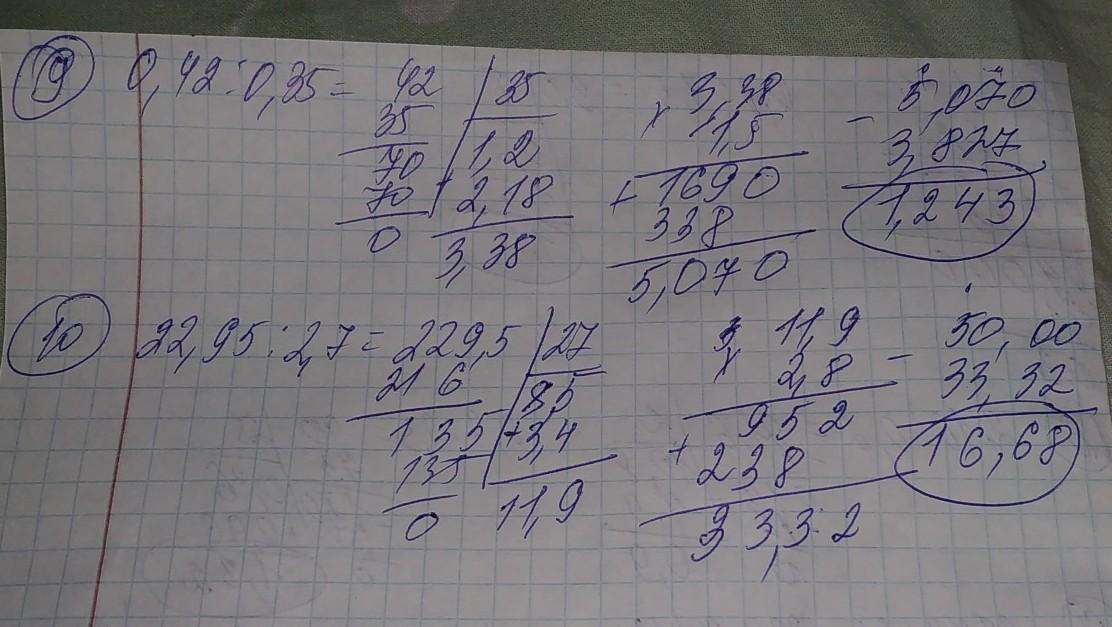 9 0,42:0,35= 42 35 3,38 5,070
35 1,2 × 1,5 - 3,827
70 + 2,18 + 1690 1,243
70 3,38 338
0 5,070
10 22,95:2,7= 229,5 27 11,9 50,00
216 8,5 × 2,8 - 33,32
135 +3,4 952 16,68
135 11,9 + 238
0 33,32